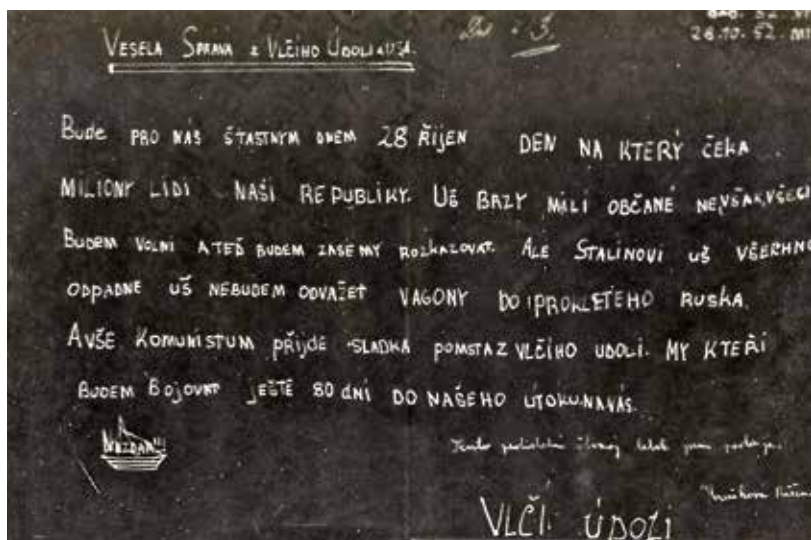 VESELA SPRAVA Z VLČIHO ÚDOLI A USA.
č 3.
28.10. 52
Bude PRO NÁS ŠTASTNYM DNEM 28 ŘIJEN DEN NA KTERÝ ČEKA
MILIONY LÍDI NAŠI REPUBLIKY. UŠ BRZY MILÍ OBČANÉ NE,VŠAK,VŠECI
BUDEM VOLNI A TEĎ BUDEM ZASE MY ROZKAZOVAT. ALE STALINOVI UŠ VŠERHNO
ODPADNE UŠ NEBUDEM ODVAŽET VAGONY DO PROKLETÉHO RUSKA.
AVŠE KOMUNISTUM PŘIJDE SLADKA POMSTA Z VLČIHO UDOLI. MY KTEŘI
BUDEM BOJOVAT JEŠTĚ 80 dNÍ DO NAŠEHO ÚTOKU.NA VÁS.
NAZDAR
Tento
VLČÍ ÚDOLI